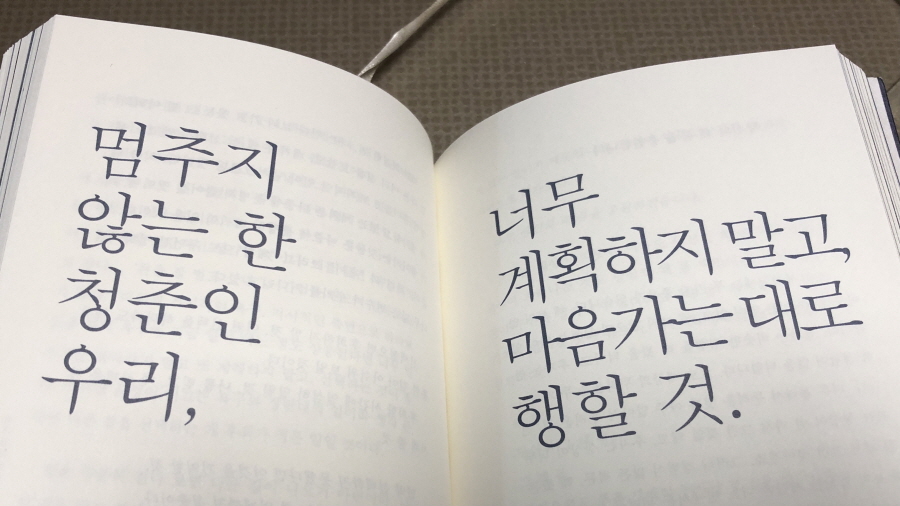 멈추지
않는 한
청춘인
우리,
너무
계획하지 말고,
마음가는 대로
행할 것.